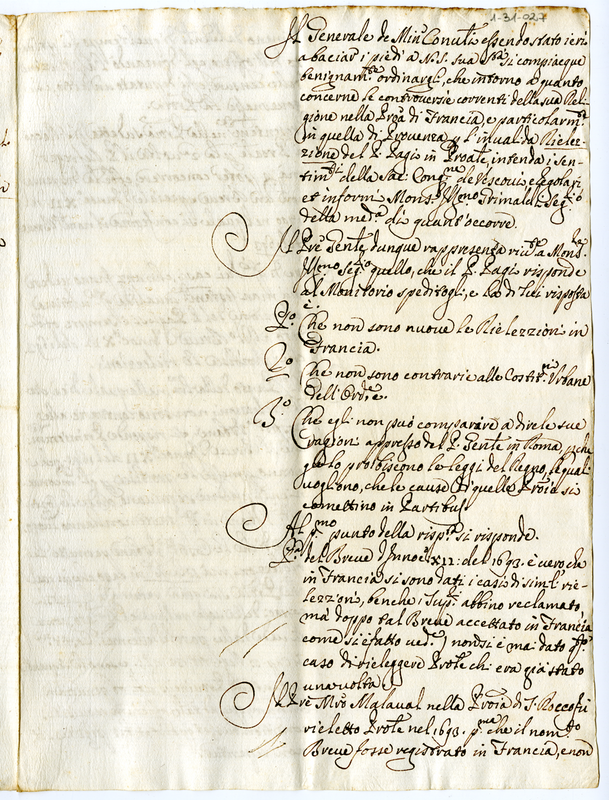 1-31-027
Il Generale de Min.ⁱ Conu.ˡⁱ essendo stato ieri
a baciar i piedi a N. S. Sua S.ᵗᵃ si compiacque
benignam.ᵗᵉ ordinargli, che intorno a quanto
concerne le controversie correnti della sua Reli-
gione nella Prou.ᵃ di Francia, e particolarm.ᵗᵉ
in quella di Prouenza p l'inualida Rielez-
zione del P. Pagis in Pro.ᵃˡᵉ, intenda i sen-
tim.ᵗⁱ della Sac. Cong.ⁿᵉ de Vescoui, e Regolari
et informi Mons.ʳ Grimaldi Seg.ʳⁱᵒ
della med.ᵃ di quant'occorre.
Il P.ʳᵉ Gen.ˡᵉ dunque rappresenta a Mons.ʳ
Seg.ʳⁱᵒ quello, che il P. Pagis risponde
al Monitorio speditogli, e la di lui risposta
è.
P.º Che non sono nuoue le Rielezzioni in
Francia.
2.º Che non sono contrarie alle Costit.ⁿⁱ Urbane
dell'Ord.ᵉ
3.º Che egli non può comparire a dire le sue
ragioni appresso del P. Gen.ˡᵉ in Roma p che
glielo proibiscono le leggi del Regno, le quali
uogliono, che le cause di quelle Prouᵃ si
comettino in Partibus
Al p.ᵐᵒ punto della risp.ᵗᵃ si risponde.
P.ᵃ del Breue d'Innoc. XII: del 1693. è uero che
in Francia si sono dati i casi di simili rie-
lezzioni, benche i Sup.ʳⁱ abbino reclamato,
ma doppo tal Breue accettato in Francia
come si è fatto ued.ʳᵉ, non si è mai dato q.ᵗᵒ
caso di rieleggere Pro.ˡᵉ chi era già stato
una uolta.
Il P.ʳᵉ M.ʳᵒ Malaval nella Prou.ᵃ di S. Rocco fu
rieletto Pro.ˡᵉ nel 1693. p.ᵐᵃ che il nom.ᵗᵒ
Breue fosse registrato in Francia, e non